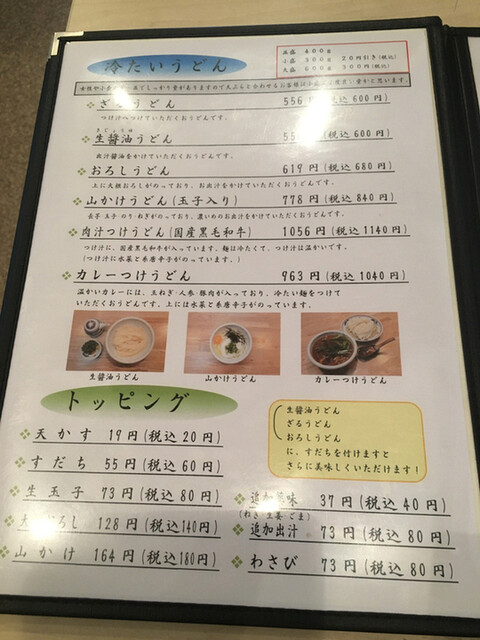 冷たいうどん
並盛 400g
小盛 300g 20円引き(税込)
大盛 600g 300円(税込)
ざるうどん 556円(税込600円)
つけ汁へつけていただくおうどんです。
きじょうゆ
生醤油うどん (税込600円)
出汁醤油をかけていただくおうどんです。
おろしうどん 619円(税込680円)
上に大根おろしがのっており、お出汁をかけていただくおうどんです。
山かけうどん(玉子入り) 778円(税込840円)
長芋・玉子・のり・ねぎがのっており、濃いめのお出汁をかけていただくおうどんです。
肉汁つけうどん(国産黒毛和牛) 1056円(税込1140円)
つけ汁に、国産黒毛和牛が入っています。麺は冷たくて、つけ汁は温かいです。
(つけ汁に水菜と糸唐辛子がのっています。)
カレーつけうどん 963円(税込1040円)
温かいカレーには、玉ねぎ・人参・豚肉が入っており、冷たい麺をつけて
いただくおうどんです。上には水菜と糸唐辛子がのっています。
生醤油うどん
山かけうどん
カレーつけうどん
トッピング
天かす 19円(税込20円)
すだち 55円(税込60円)
生玉子 73円(税込80円)
大根おろし 128円(税込140円)
山かけ 164円(税込180円)
生醤油うどん
ざるうどん
おろしうどん
に、すだちを付けますと
さらに美味しくいただけます!
追加薬味 37円(税込40円)
(ねぎ・生姜・ごま)
追加出汁 73円(税込80円)
わさび 73円(税込80円)